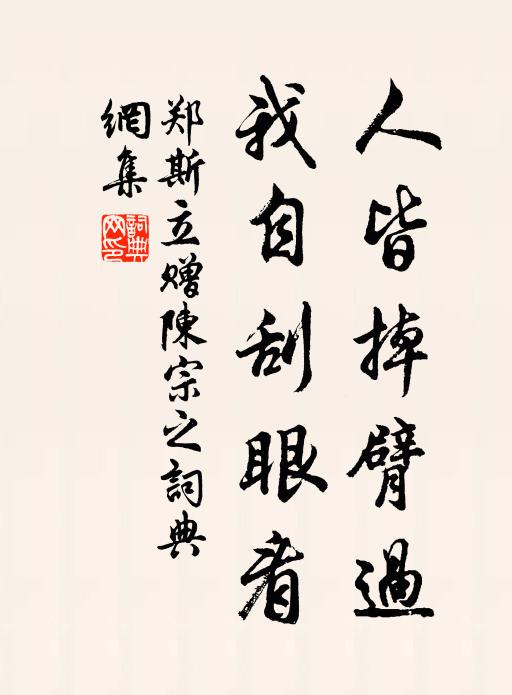 人皆掉臂過
我自刮眼看
郑斯立赠陳宗之詞典
網集
詞典
网印